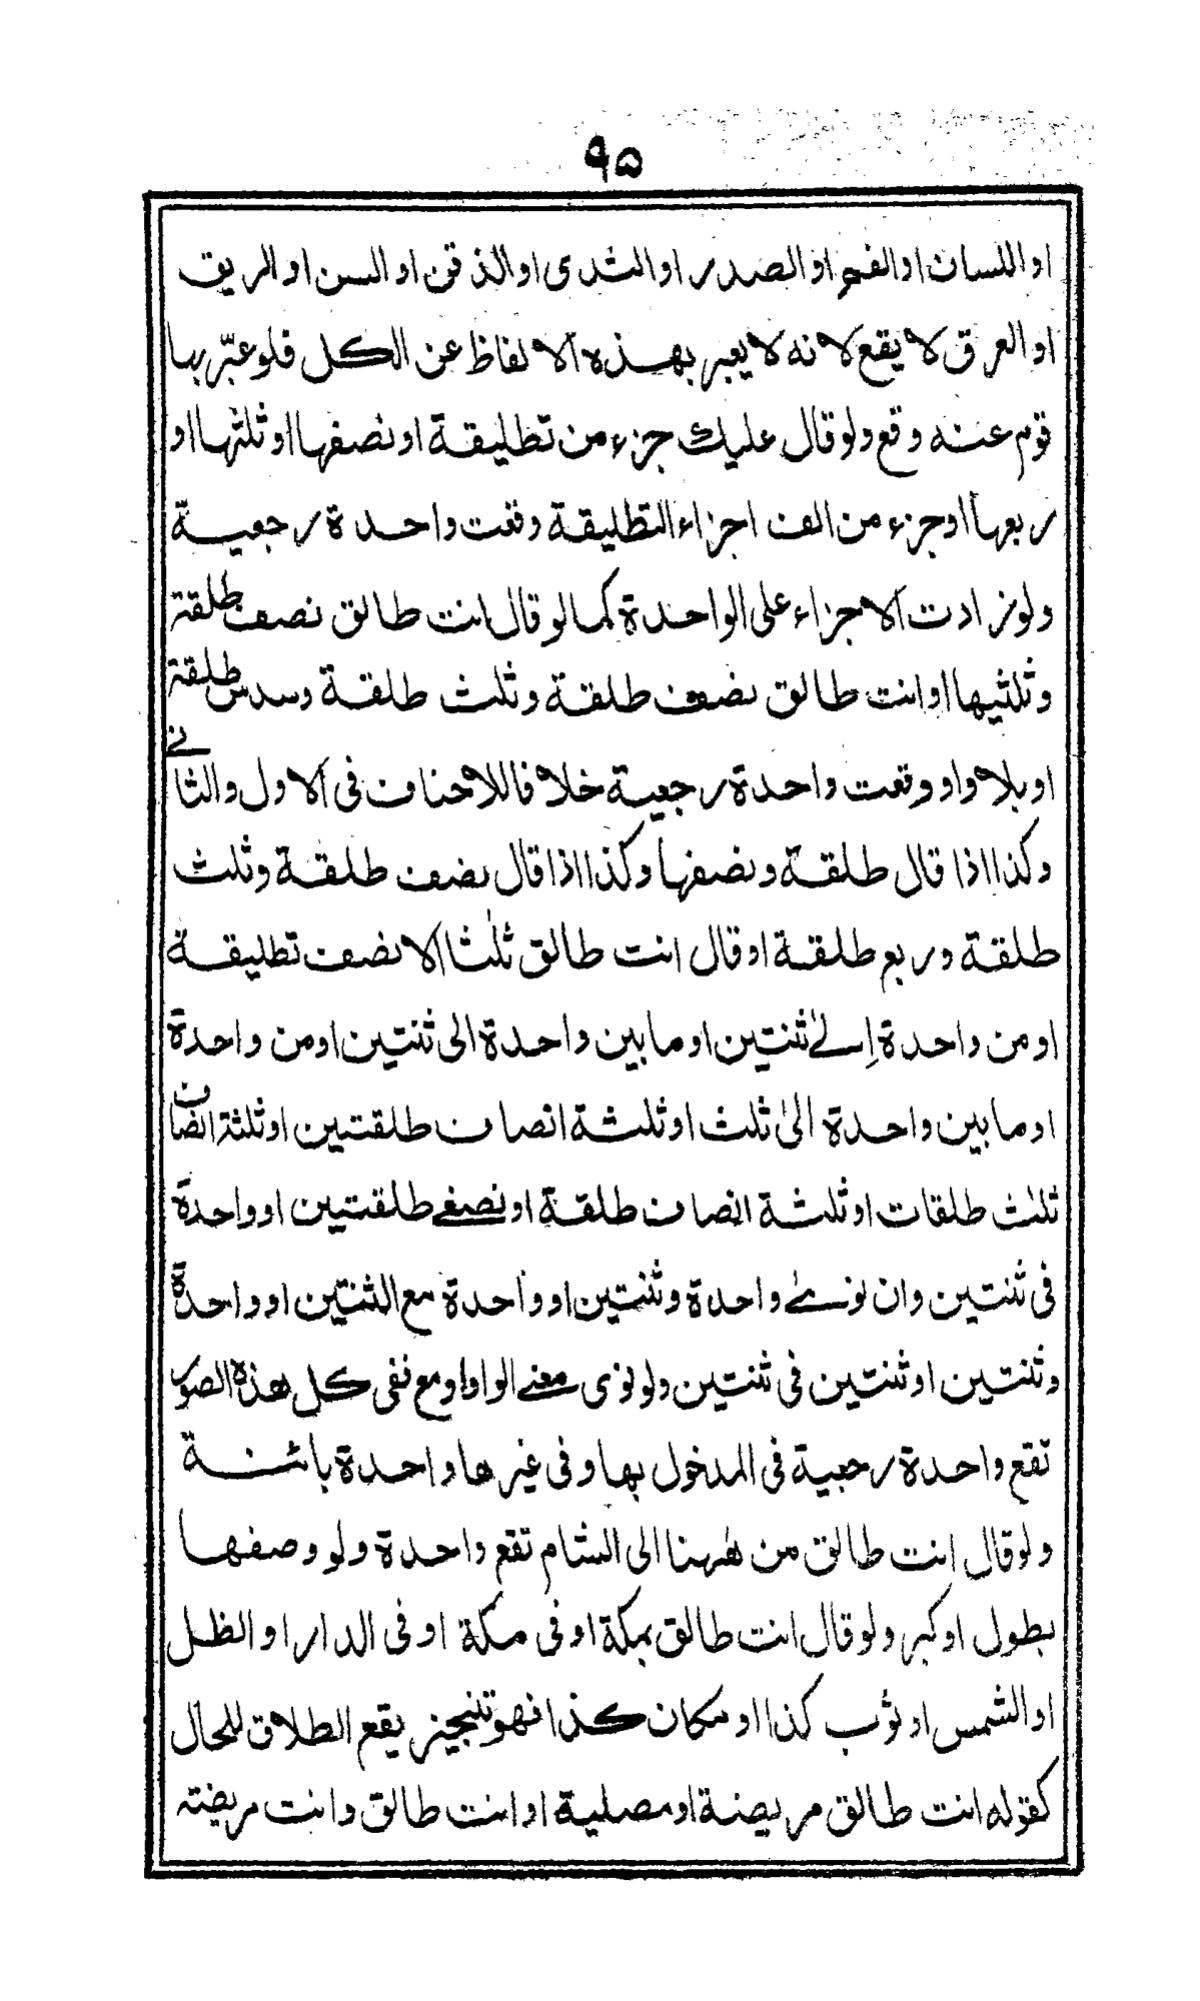 ٩۵
او اللسان او الفم او الصدر او الثدى او الذقن او السن او الريق
او العرق لا يقع لانه لا يعبر بهذه الالفاظ عن الكل فلو عبّر بها
قوم عنه وقع ولو قال عليك جزء من تطليقة او نصفها او ثلثها او
ربعها او جزء من الف اجزاء التطليقة وقعت واحدة رجعية
ولو زادت الاجزاء على الواحدة كما لو قال انت طالق نصف طلقة
وثلثيها او انت طالق نصف طلقة وثلث طلقة وسدس طلقة
او بلا واو وقعت واحدة رجعية خلافا للاحناف فى الاول والثانے
وكذا اذا قال طلقة ونصفها وكذا اذا قال نصف طلقة وثلث
طلقة وربع طلقة او قال انت طالق ثلٰثا الا نصف تطليقة
او من واحدة اِلےٰ ثنتين او ما بين واحدة الى ثنتين او من واحدة
او ما بين واحدة الىٰ ثلث او ثلثة انصاف طلقتين او ثلثة انصاف
ثلٰث طلقات او ثلثة انصاف طلقة او نصفے طلقتين او واحدة
فى ثنتين وان نوےٰ واحدة وثنتين او واحدة مع الثنتين او واحدة
وثنتين او ثنتين فى ثنتين ولو نوى معنے الواو او مع ففى كل هذه الصور
تقع واحدة رجعية فى المدخول بها وفى غيرها واحدة بائنة
ولو قال انت طالق من هٰهنا الى الشام تقع واحدة ولو وصفها
بطول او كبر ولو قال انت طالق بمكة او فى مكة او فى الدار او الظل
او الشمس او ثوب كذا او مكان كذا فهو تنجيز يقع الطلاق للحال
كقوله انت طالق مريضة او مصلية او انت طالق وانت مريضة